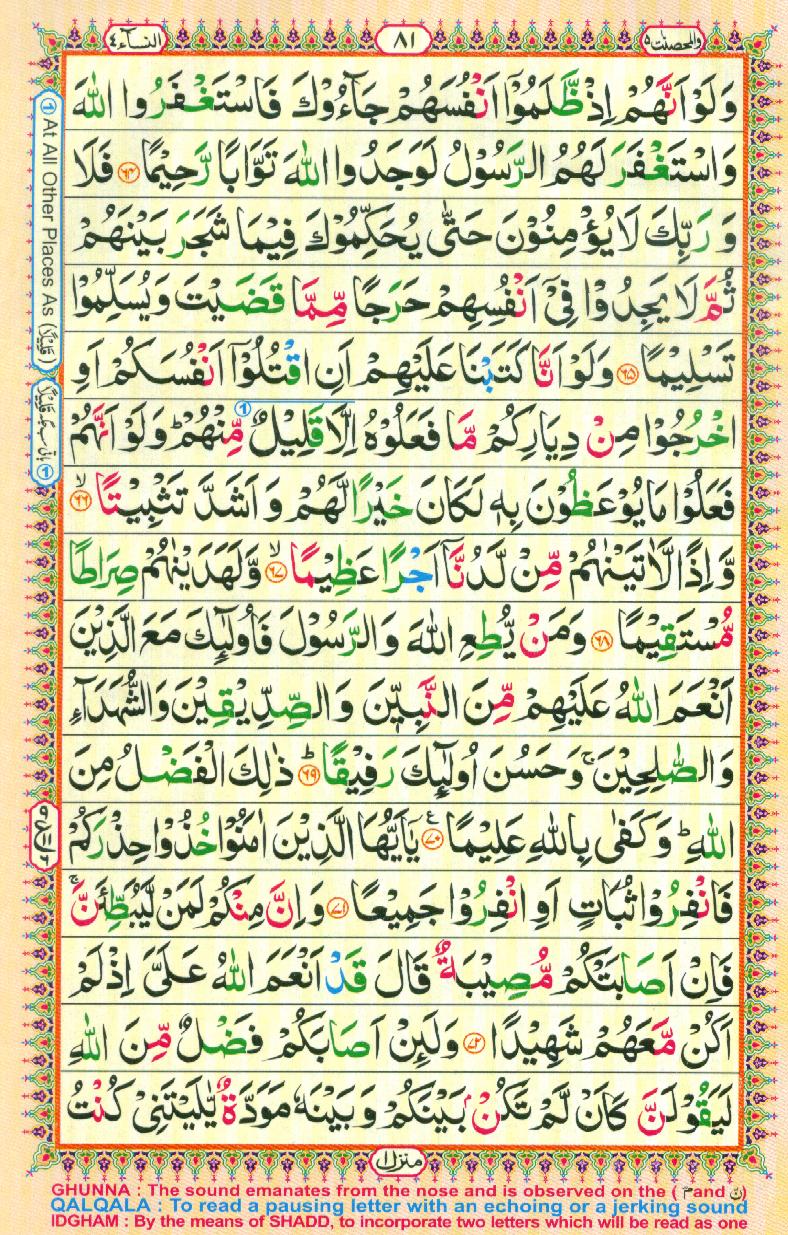 النسآء ٤
٨١
والمحصنٰت ٥
وَلَوْ اَنَّهُمْ اِذْ ظَّلَمُوْۤا اَنْفُسَهُمْ جَآءُوْكَ فَاسْتَغْفَرُوا اللّٰهَ
وَاسْتَغْفَرَ لَهُمُ الرَّسُوْلُ لَوَجَدُوا اللّٰهَ تَوَّابًا رَّحِيْمًا ۝٦٤ فَلَا
وَ رَبِّكَ لَا يُؤْمِنُوْنَ حَتّٰى يُحَكِّمُوْكَ فِيْمَا شَجَرَ بَيْنَهُمْ
ثُمَّ لَا يَجِدُوْا فِيْۤ اَنْفُسِهِمْ حَرَجًا مِّمَّا قَضَيْتَ وَيُسَلِّمُوْا
تَسْلِيْمًا ۝٦٥ وَلَوْ اَنَّا كَتَبْنَا عَلَيْهِمْ اَنِ اقْتُلُوْۤا اَنْفُسَكُمْ اَوِ
اخْرُجُوْا مِنْ دِيَارِكُمْ مَّا فَعَلُوْهُ اِلَّا قَلِيْلٌ ① مِّنْهُمْ ؕ وَلَوْ اَنَّهُمْ
فَعَلُوْا مَا يُوْعَظُوْنَ بِهٖ لَكَانَ خَيْرًا لَّهُمْ وَ اَشَدَّ تَثْبِيْتًا ۙ۝٦٦
وَّ اِذًا لَّاٰتَيْنٰهُمْ مِّنْ لَّدُنَّاۤ اَجْرًا عَظِيْمًا ۙ۝٦٧ وَّلَهَدَيْنٰهُمْ صِرَاطًا
مُّسْتَقِيْمًا ۝٦٨ وَمَنْ يُّطِعِ اللّٰهَ وَالرَّسُوْلَ فَاُولٰٓئِكَ مَعَ الَّذِيْنَ
اَنْعَمَ اللّٰهُ عَلَيْهِمْ مِّنَ النَّبِيّٖنَ وَالصِّدِّيْقِيْنَ وَالشُّهَدَآءِ
وَالصّٰلِحِيْنَ ۚ وَحَسُنَ اُولٰٓئِكَ رَفِيْقًا ؕ۝٦٩ ذٰلِكَ الْفَضْلُ مِنَ
اللّٰهِ ؕ وَكَفٰى بِاللّٰهِ عَلِيْمًا ۝٧٠ ع يٰۤاَيُّهَا الَّذِيْنَ اٰمَنُوْا خُذُوْا حِذْرَكُمْ
فَانْفِرُوْا ثُبَاتٍ اَوِ انْفِرُوْا جَمِيْعًا ۝٧١ وَاِنَّ مِنْكُمْ لَمَنْ لَّيُبَطِّئَنَّ ۚ
فَاِنْ اَصَابَتْكُمْ مُّصِيْبَةٌ قَالَ قَدْ اَنْعَمَ اللّٰهُ عَلَيَّ اِذْ لَمْ
اَكُنْ مَّعَهُمْ شَهِيْدًا ۝٧٢ وَلَئِنْ اَصَابَكُمْ فَضْلٌ مِّنَ اللّٰهِ
لَيَقُوْلَنَّ كَاَنْ لَّمْ تَكُنْۢ بَيْنَكُمْ وَبَيْنَهٗ مَوَدَّةٌ يّٰلَيْتَنِيْ كُنْتُ
① At All Other Places As (قَلِيْلًا)
منزل ١
GHUNNA : The sound emanates from the nose and is observed on the ( م and ن)
QALQALA : To read a pausing letter with an echoing or a jerking sound
IDGHAM : By the means of SHADD, to incorporate two letters which will be read as one